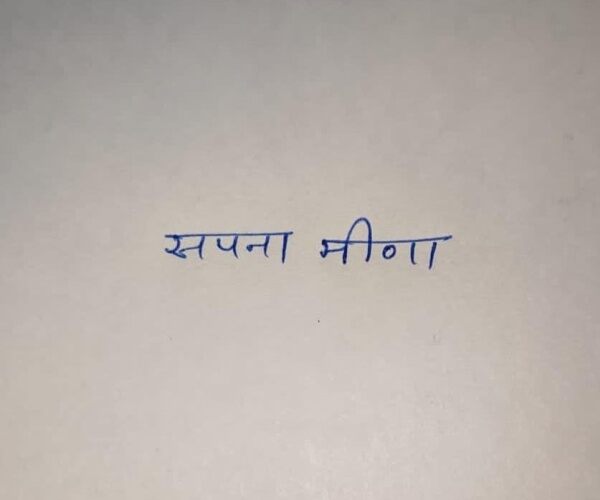 सपना मीणा